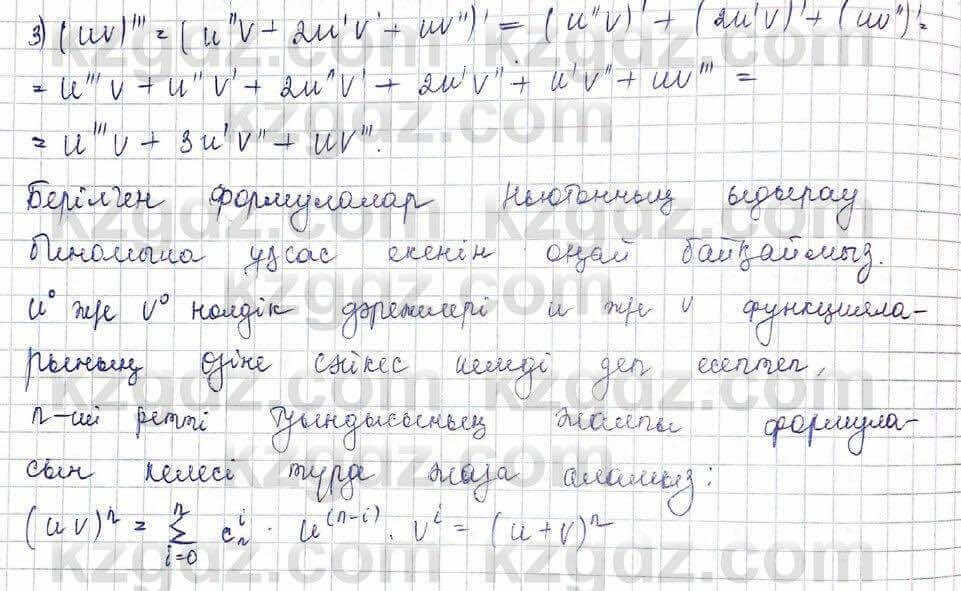 3) (uv)''' = (u''v + 2u'v' + uv'')' = (u''v)' + (2u'v')' + (uv'')' =
= u'''v + u''v' + 2u''v' + 2u'v'' + u'v'' + uv''' =
= u'''v + 3u'v'' + uv'''.
Берілген формулалар Ньютонның ыдырау
биномына ұқсас екенін оңай байқаймыз.
u⁰ же v⁰ нөлдік дәрежелері u же v функцияла-
рының өзіне сәйкес келеді деп есептеп,
n-ші ретті туындысының жалпы формула-
сын келесі түрде жаза аламыз:
(uv)ⁿ = Σ_{i=0}^{n} c_n^i · u^{(n-i)} · v^i = (u+v)ⁿ
kzgdz.com
kzgdz.com
kzgdz.com
kzgdz.com
kzgdz.com
kzgdz.com